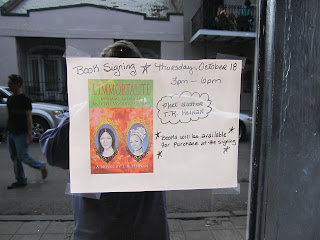 Book Signing ★ Thursday, October 18
3pm - 6pm
L'IMMORTALITE
Meet author
T.R. Heinan
★ Books will be available
for purchase at the signing ★